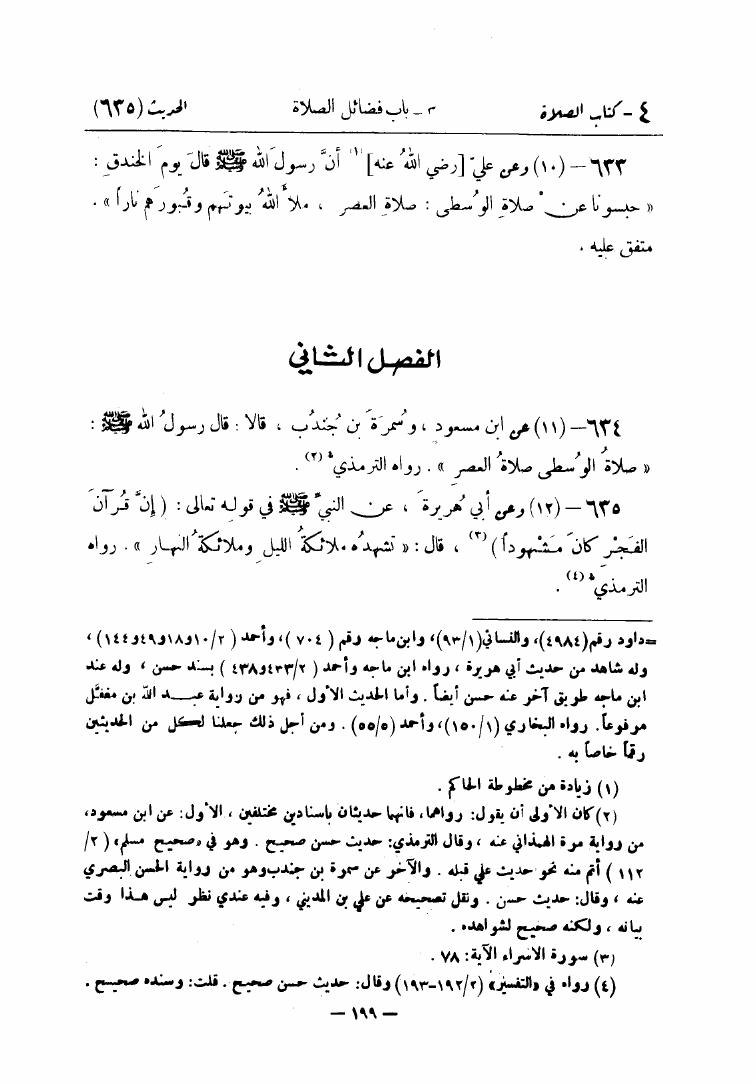 ٤ - كتاب الصلاة ٣ - باب فضائل الصلاة الحديث (٦٣٥)
٦٣٣ - (١٠) وعن عليّ [رضي اللهُ عنه] (١) أنَّ رسولَ الله ﷺ قالَ يومَ الخندقِ :
« حبسونا عن ْ صلاةِ الوُسطى : صلاةِ العصر ، ملأ اللهُ بيوتَهم وقُبورَهم ناراً » .
متفق عليه .
الفصل الثاني
٦٣٤ - (١١) عن ابن مسعودٍ ، وسُمرَةَ بن جُندُب ، قالا : قال رسولُ الله ﷺ :
« صلاةُ الوُسطى صلاةُ العصرِ » . رواه الترمذي (٢) .
٦٣٥ - (١٢) وعن أبي هُريرةَ ، عن النبيِّ ﷺ في قوله تعالى : ( إنَّ قُرآنَ
الفَجْرِ كانَ مَشْهوداً ) (٣) ، قال : « تشهدُه ملائكةُ الليلِ وملائكةُ النهارِ » . رواه
الترمذي (٤) .
=داود رقم (٤٩٨٤)، والنسائي (٩٣/١)، وابن ماجه رقم ( ٧٠٤ )، وأحمد ( ١٠/٢و١٨و٤٩و١٤٤) ،
وله شاهد من حديث أبي هريرة ، رواه ابن ماجه وأحمد ( ٤٣٣/٢و٤٣٨ ) بسند حسن ، وله عند
ابن ماجه طريق آخر عنه حسن أيضاً . وأما الحديث الأول ، فهو من رواية عبد الله بن مغفّل
مرفوعاً. رواه البخاري (١٥٠/١)، وأحمد (٥٥/٥) . ومن أجل ذلك جعلنا لكل من الحديثين
رقماً خاصاً به .
(١) زيادة من مخطوطة الحاكم .
(٢) كان الأولى أن يقول: رواهما، فانهما حديثان بأسنادين مختلفين ، الأول: عن ابن مسعود،
من رواية مرة الهمذاني عنه ، وقال الترمذي: حديث حسن صحيح . وهو في «صحيح مسلم» (٢/
١١٢ ) أتم منه نحو حديث علي قبله . والآخر عن سمرة بن جندب وهو من رواية الحسن البصري
عنه ، وقال: حديث حسن . ونقل تصحيحه عن علي بن المديني ، وفيه عندي نظر ليس هذا وقت
بيانه ، ولكنه صحيح لشواهده .
(٣) سورة الاسراء الآية: ٧٨ .
(٤) رواه في «التفسير» (١٩٢/٢-١٩٣) وقال: حديث حسن صحيح . قلت: وسنده صحيح .
— ١٩٩ —